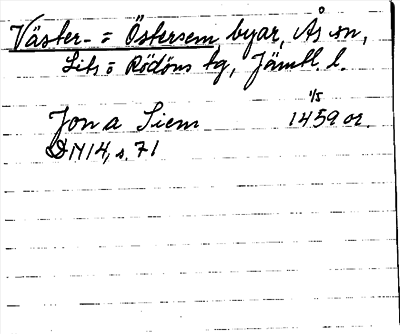 Väster- = Östersem byar, Ås sn,
Lits o Rödöns tg, Jämtl. l.
Jon a Siem 1/5 1459 or.
DN 14, s. 71